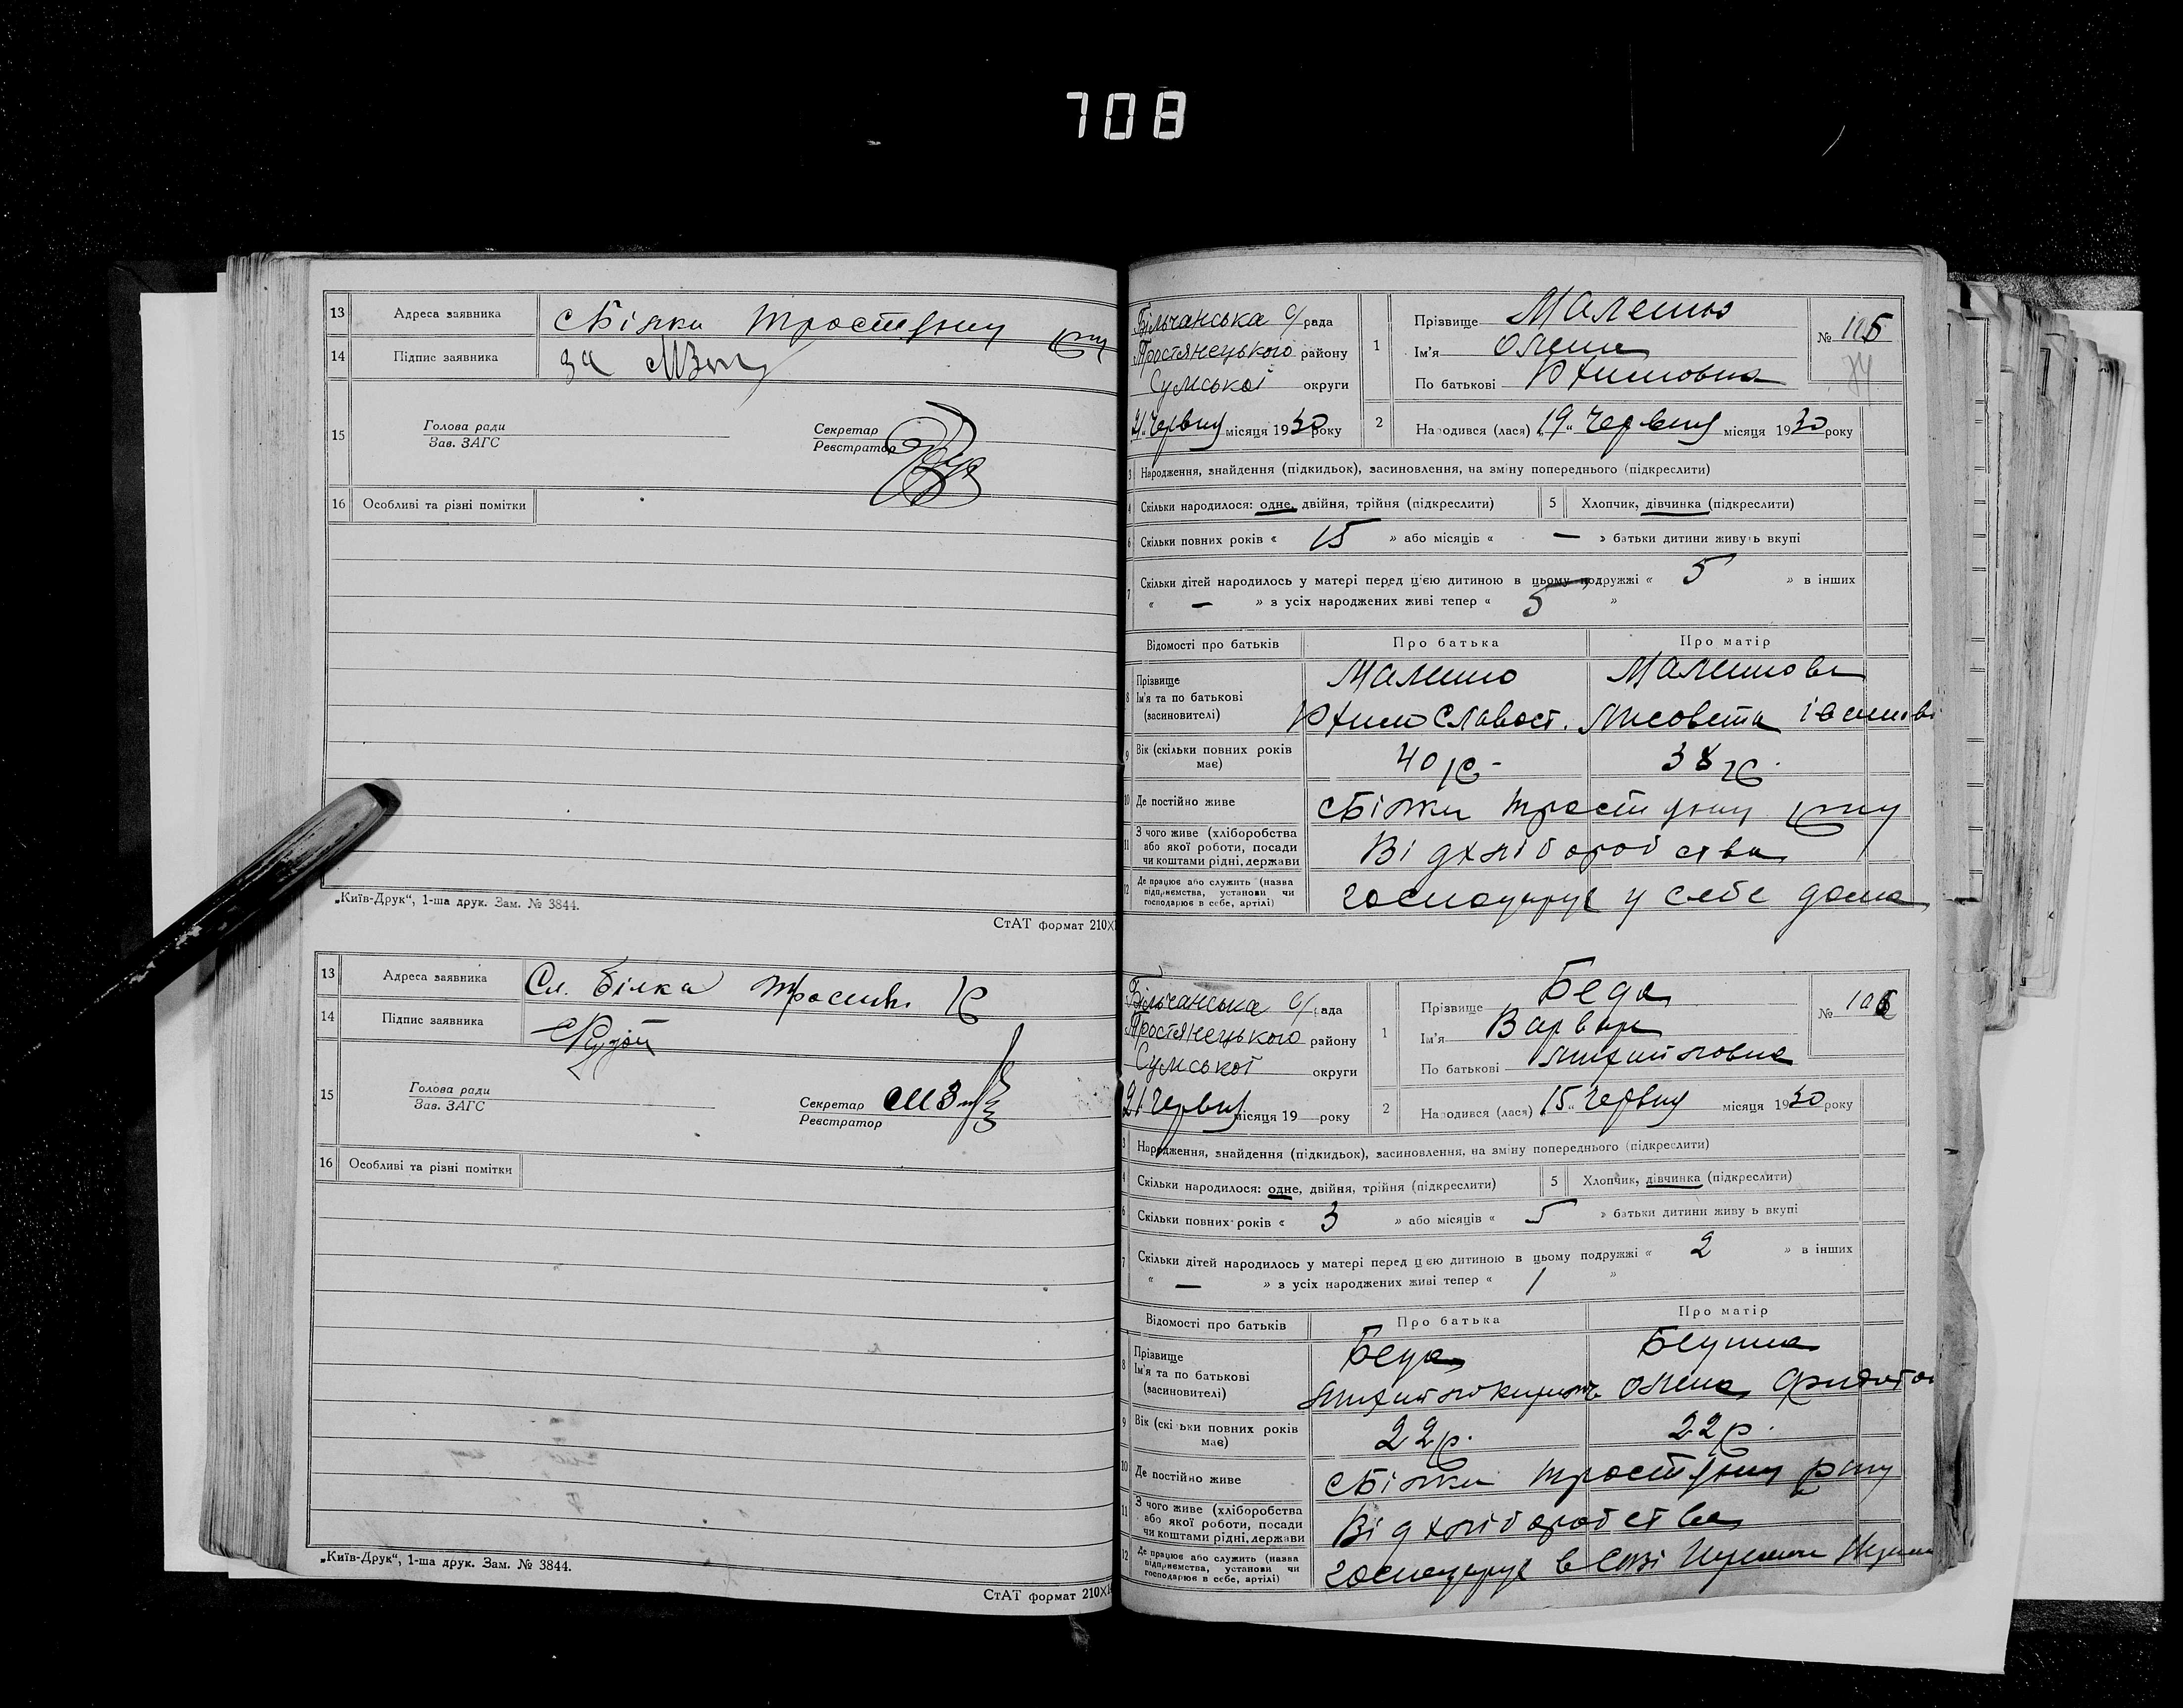 708
13 Адреса заявника сБілки Тростян. р-ну
14 Підпис заявника за
15 Голова ради Зав. ЗАГС Секретар Реєстратор
16 Особливі та різні помітки
„Київ-Друк“, 1-ша друк. Зам. № 3844.
СтАТ формат 210Х
13 Адреса заявника Сл. білка Тростян. р
14 Підпис заявника
15 Голова ради Зав. ЗАГС Секретар Реєстратор
16 Особливі та різні помітки
„Київ-Друк“, 1-ша друк. Зам. № 3844.
СтАТ формат 210Х
Більчанська с/рада
Тростянецького району
Сумської округи
21 Червня місяця 1930 року
1 Прізвище
Ім'я Олена
По батькові
№ 105
2 Народився (лася) „19“ Червня місяця 1930 року
3 Народження, знайдення (підкидьок), засиновлення, на зміну попереднього (підкреслити)
4 Скільки народилося: одне, двійня, трійня (підкреслити) 5 Хлопчик, дівчинка (підкреслити)
6 Скільки повних років « 15 » або місяців « — » батьки дитини живуть вкупі
7 Скільки дітей народилось у матері перед цією дитиною в цьому подружжі « 5 » в інших
« — » з усіх народжених живі тепер « 5 »
Відомості про батьків Про батька Про матір
8 Прізвище
Ім'я та по батькові
(засиновителі) Лисовета
9 Вік (скільки повних років має) 40 р. 38 р.
10 Де постійно живе сБілки Тростян. р-ну
11 З чого живе (хліборобства або якої роботи, посади чи коштами рідні, держави Від хліборобства
12 Де працює або служить (назва підприємства, установи чи господарює в себе, артілі) господарує у себе дома
Більчанська с/рада
Тростянецького району
Сумської округи
21 Червня місяця 19 року
1 Прізвище Беда
Ім'я Варвара
По батькові Михайловна
№ 106
2 Народився (лася) „15“ Червня місяця 1930 року
3 Народження, знайдення (підкидьок), засиновлення, на зміну попереднього (підкреслити)
4 Скільки народилося: одне, двійня, трійня (підкреслити) 5 Хлопчик, дівчинка (підкреслити)
6 Скільки повних років « 3 » або місяців « 5 » батьки дитини живуть вкупі
7 Скільки дітей народилось у матері перед цією дитиною в цьому подружжі « 2 » в інших
« — » з усіх народжених живі тепер « 1 »
Відомості про батьків Про батька Про матір
8 Прізвище Беда
Ім'я та по батькові
(засиновителі) Олена
9 Вік (скільки повних років має) 22 р. 22 р.
10 Де постійно живе сБілки Тростян. р-ну
11 З чого живе (хліборобства або якої роботи, посади чи коштами рідні, держави Від хліборобства
12 Де працює або служить (назва підприємства, установи чи господарює в себе, артілі) господарує в